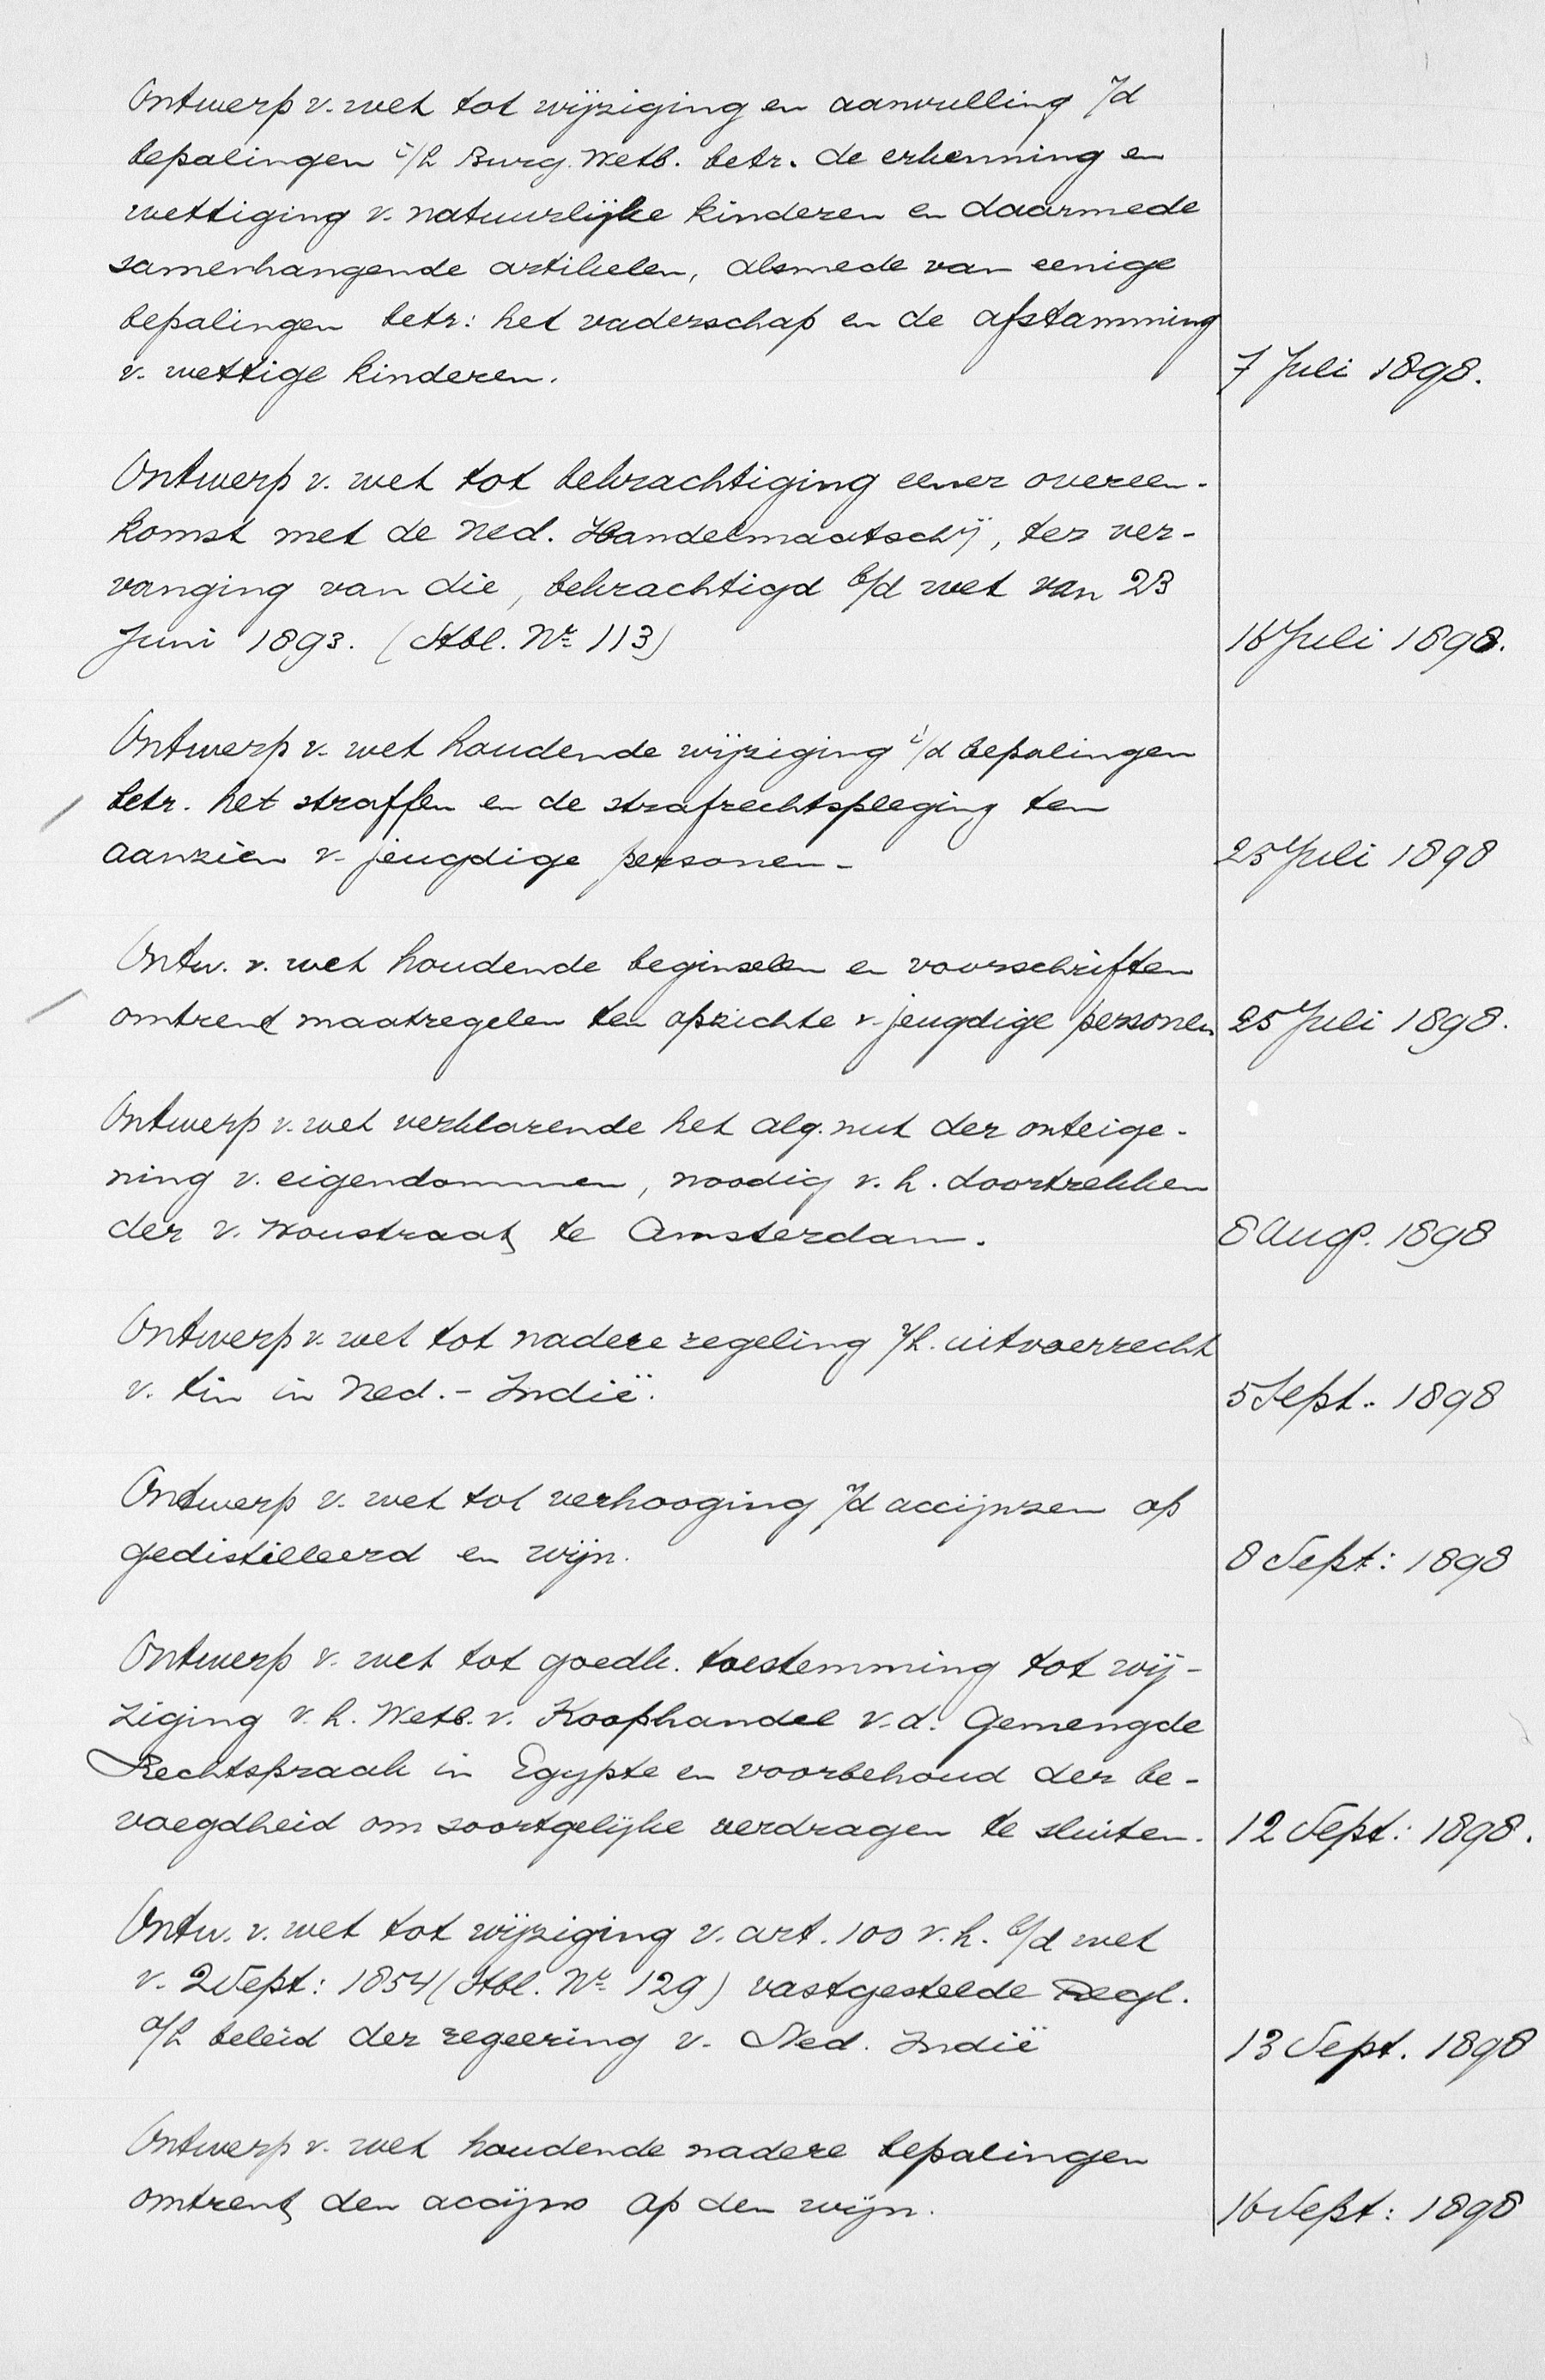 Ontwerp v. wet tot wijziging en aanvulling v/d
bepalingen i/h Burg. Wetb. betr. de erkenning en
wettiging v. natuurlijke kinderen en daarmede
samenhangende artikelen, alsmede van eenige
bepalingen betr: het vaderschap en de afstamming
v. wettige kinderen.
7 Juli 1898.
Ontwerp v. wet tot bekrachtiging eener overeen-
komst met de Ned. Handelmaatschij, ter ver-
vanging van die, bekrachtigd b/d wet van 23
Juni 1893. (Stbl. No 113)
16 Juli 1898.
Ontwerp v. wet houdende wijziging i/d bepalingen
betr. het straffen en de strafrechtspleging ten
aanzien v. jeugdige personen -
25 Juli 1898
Ontw. v. wet houdende beginselen en voorschriften
omtrent maatregelen ten opzichte v. jeugdige personen
25 Juli 1898.
Ontwerp v. wet verklarende het alg. nut der onteige-
ning v. eigendommen, noodig v. h. doortrekken
der v. Woustraat te Amsterdam.
8 Aug. 1898
Ontwerp v. wet tot nadere regeling v/h. uitvoerrecht
v. tin in Ned. - Indië.
5 Sept. 1898
Ontwerp v. wet tot verhooging v/d accijnzen op
gedistilleerd en wijn.
8 Sept: 1898
Ontwerp v. wet tot goedk. toestemming tot wij-
ziging v. h. Wetb. v. Koophandel v. d. Gemengde
Rechtspraak in Egypte en voorbehoud der be-
voegdheid om soortgelijke verdragen te sluiten.
12 Sept: 1898.
Ontw. v. wet tot wijziging v. art. 100 v. h. b/d wet
v. 2 Sept: 1854 (Stbl. No 129) vastgestelde Regl.
o/h beleid der regeering v. Ned. Indië
13 Sept. 1898
Ontwerp v. wet houdende nadere bepalingen
omtrent den accijns op den wijn.
16 Sept: 1898